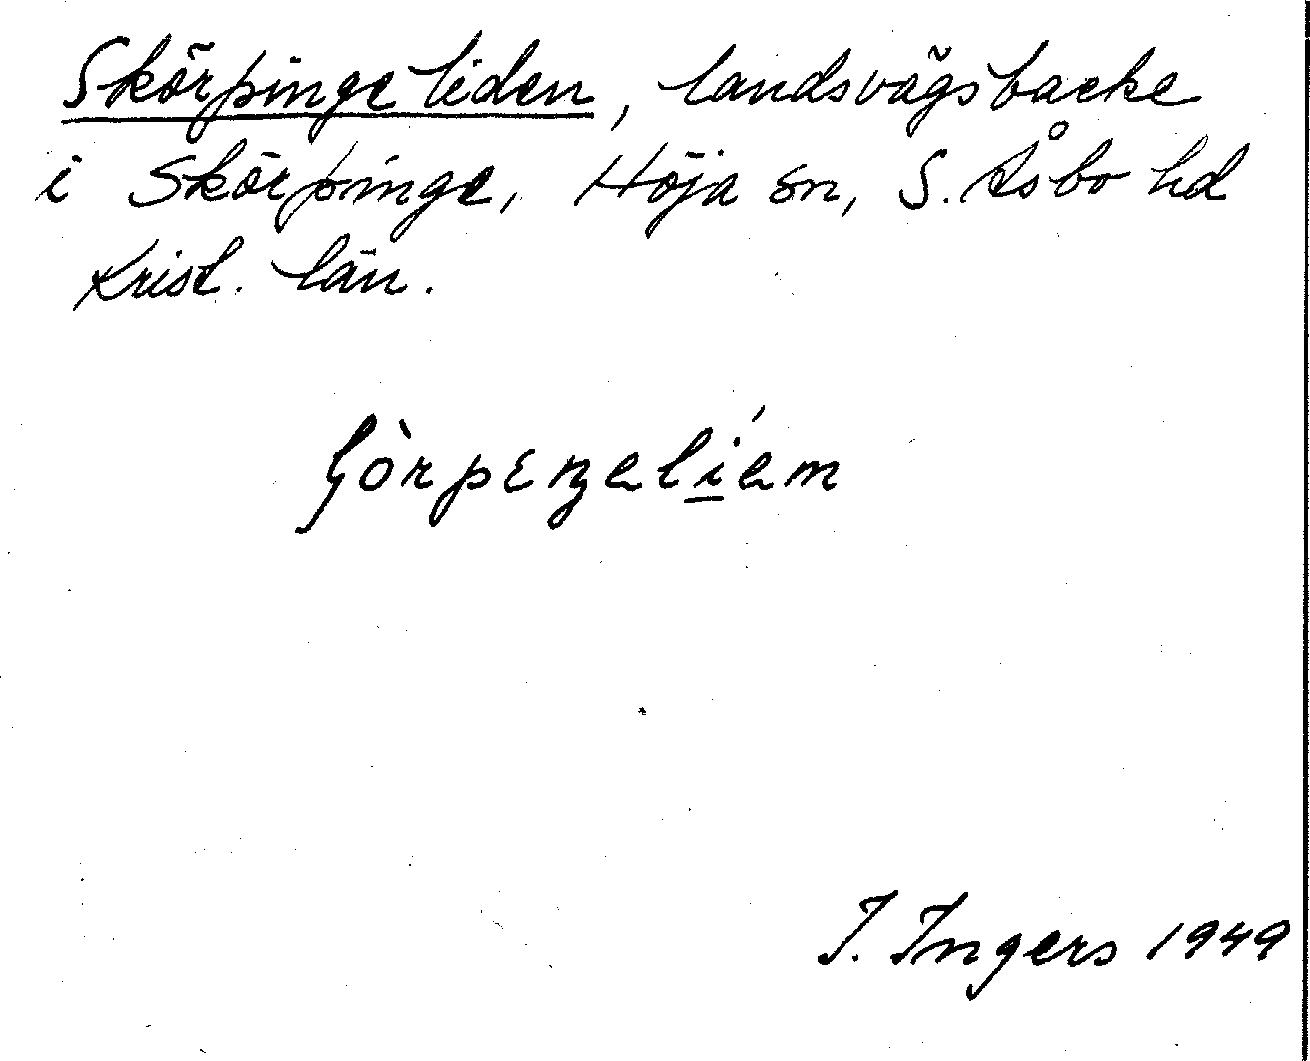 Skörpingeliden, landsvägsbacke
i Skörpinge, Höja sn, S. Åsbo hd
Krist. län.
I. Ingers 1949